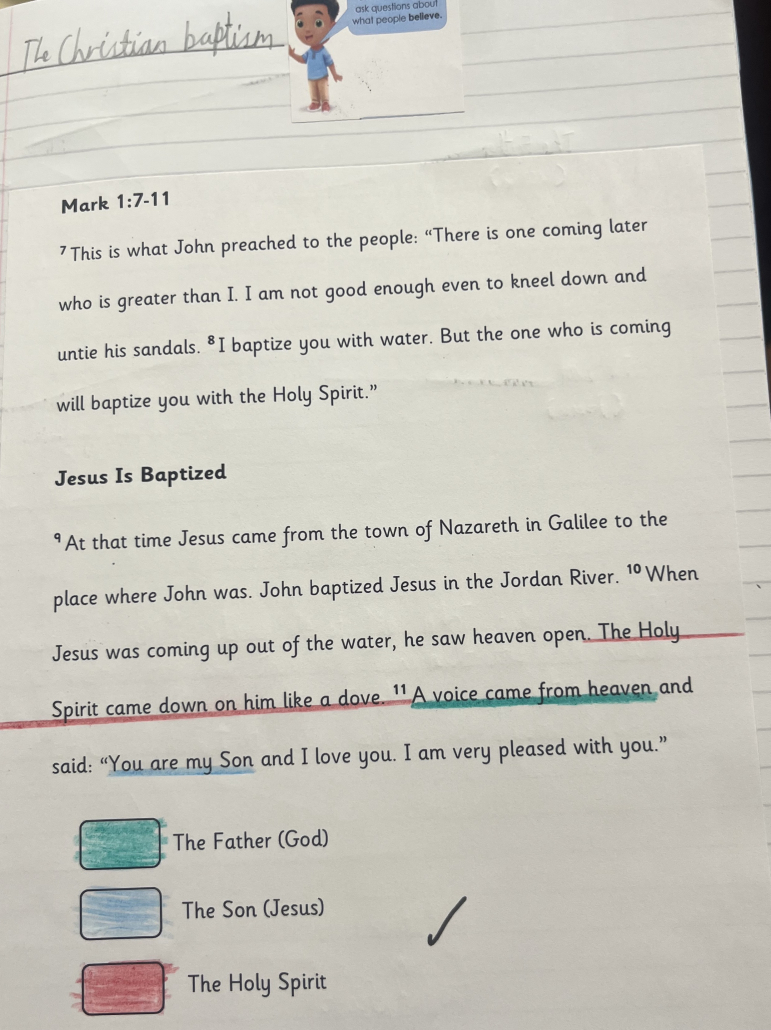 ask questions about
what people believe.
The Christian baptism
Mark 1:7-11
⁷ This is what John preached to the people: “There is one coming later
who is greater than I. I am not good enough even to kneel down and
untie his sandals. ⁸ I baptize you with water. But the one who is coming
will baptize you with the Holy Spirit.”
Jesus Is Baptized
⁹ At that time Jesus came from the town of Nazareth in Galilee to the
place where John was. John baptized Jesus in the Jordan River. ¹⁰ When
Jesus was coming up out of the water, he saw heaven open. The Holy
Spirit came down on him like a dove. ¹¹ A voice came from heaven and
said: “You are my Son and I love you. I am very pleased with you.”
The Father (God)
The Son (Jesus)
The Holy Spirit